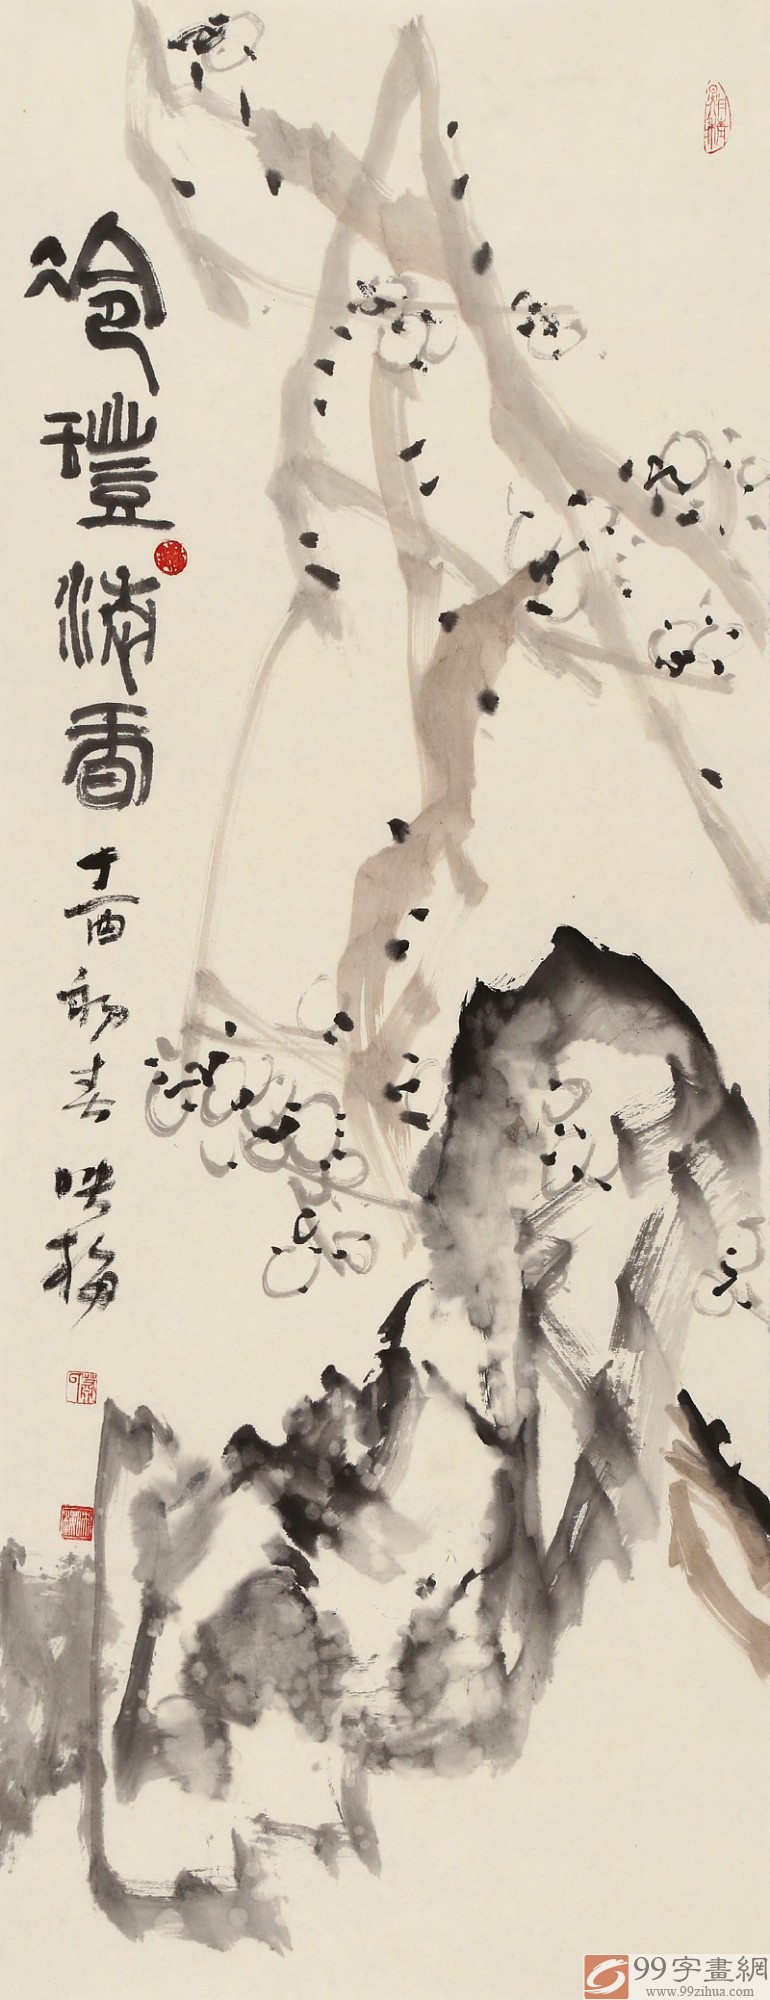 冷璒清香
丁酉初春映梅
99字畫網
www.99zihua.com